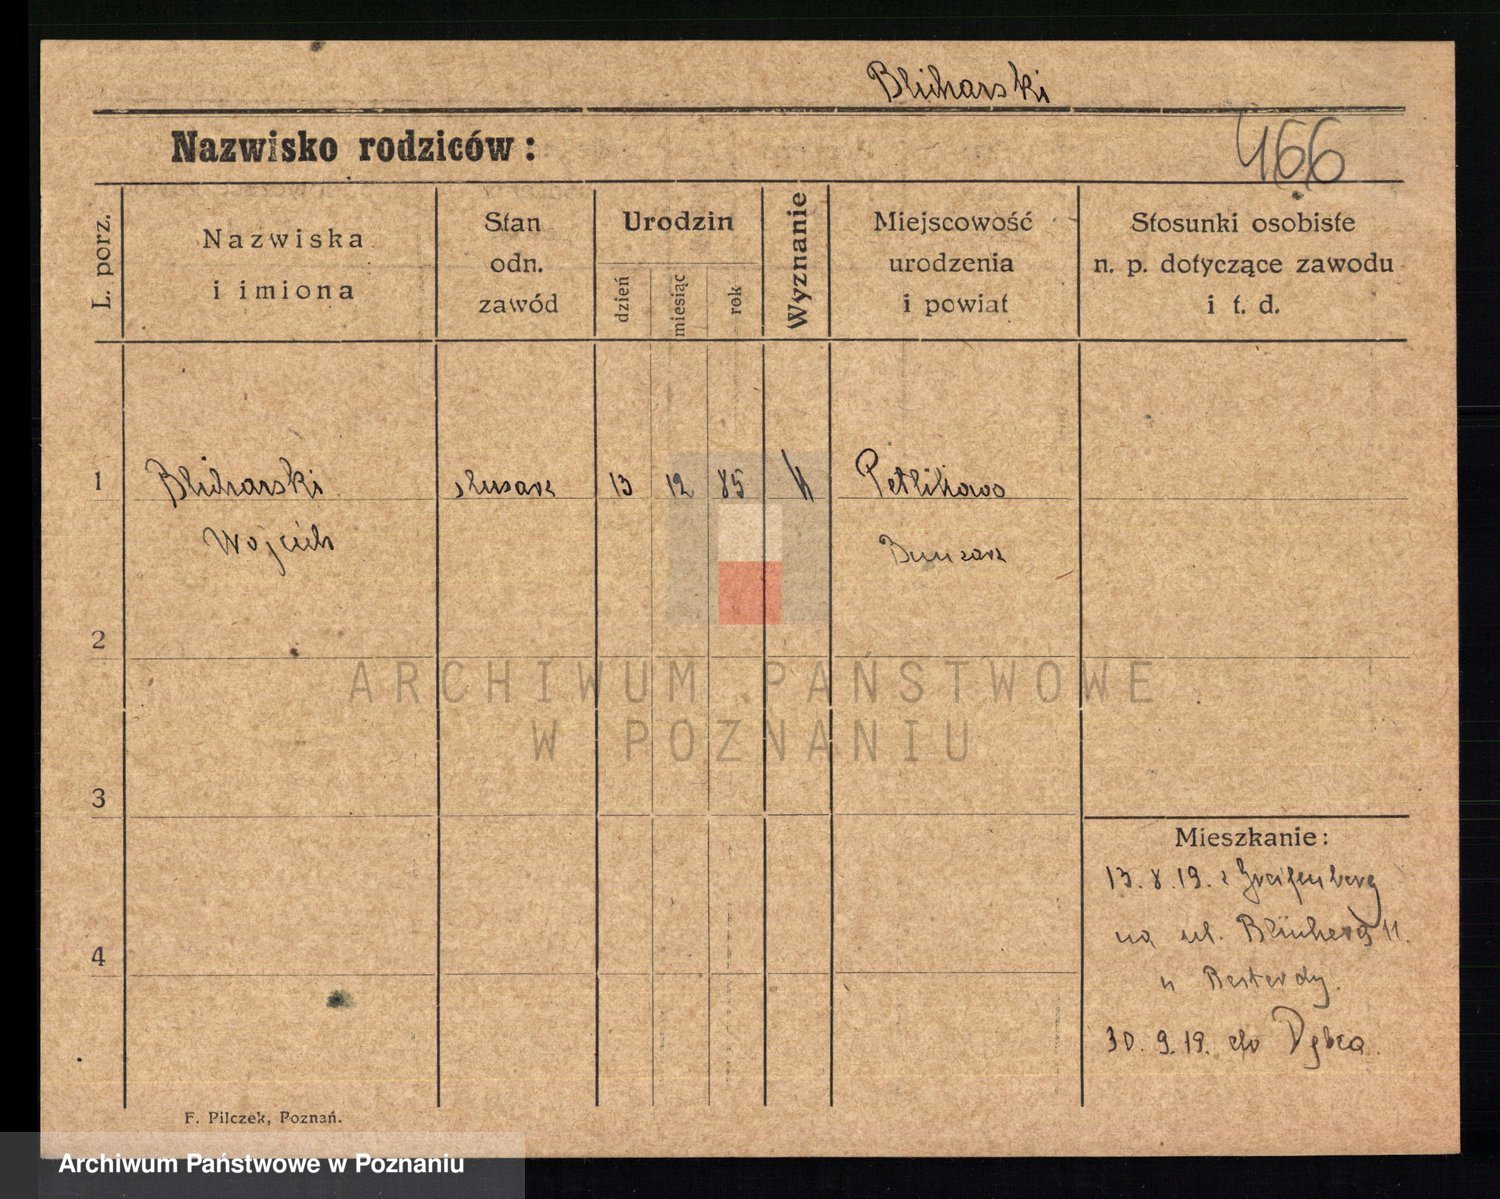 Blicharski
Nazwisko rodziców:
466
L. porz.
Nazwiska
i imiona
Stan
odn.
zawód
Urodzin
dzień
miesiąc
rok
Wyznanie
Miejscowość
urodzenia
i powiat
Stosunki osobiste
n. p. dotyczące zawodu
i t. d.
1
Blicharski
ślusarz
13
12
85
k
Petlikowo
Wojciech
Buczacz
2
ARCHIWUM PAŃSTWOWE
W POZNANIU
3
Mieszkanie:
13. 8. 19. z Greifenberg
na ul. 11.
u
4
30. 9. 19. do Dębca.
F. Pilczek, Poznań.
Archiwum Państwowe w Poznaniu